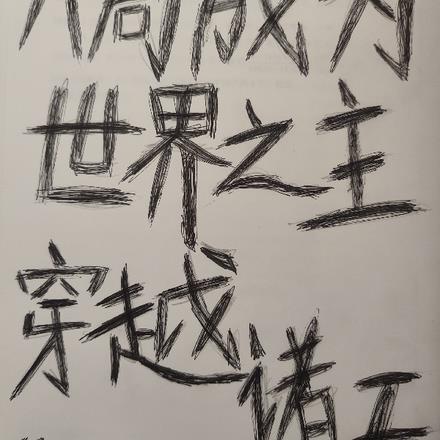 成为
世界之主
穿越
诸